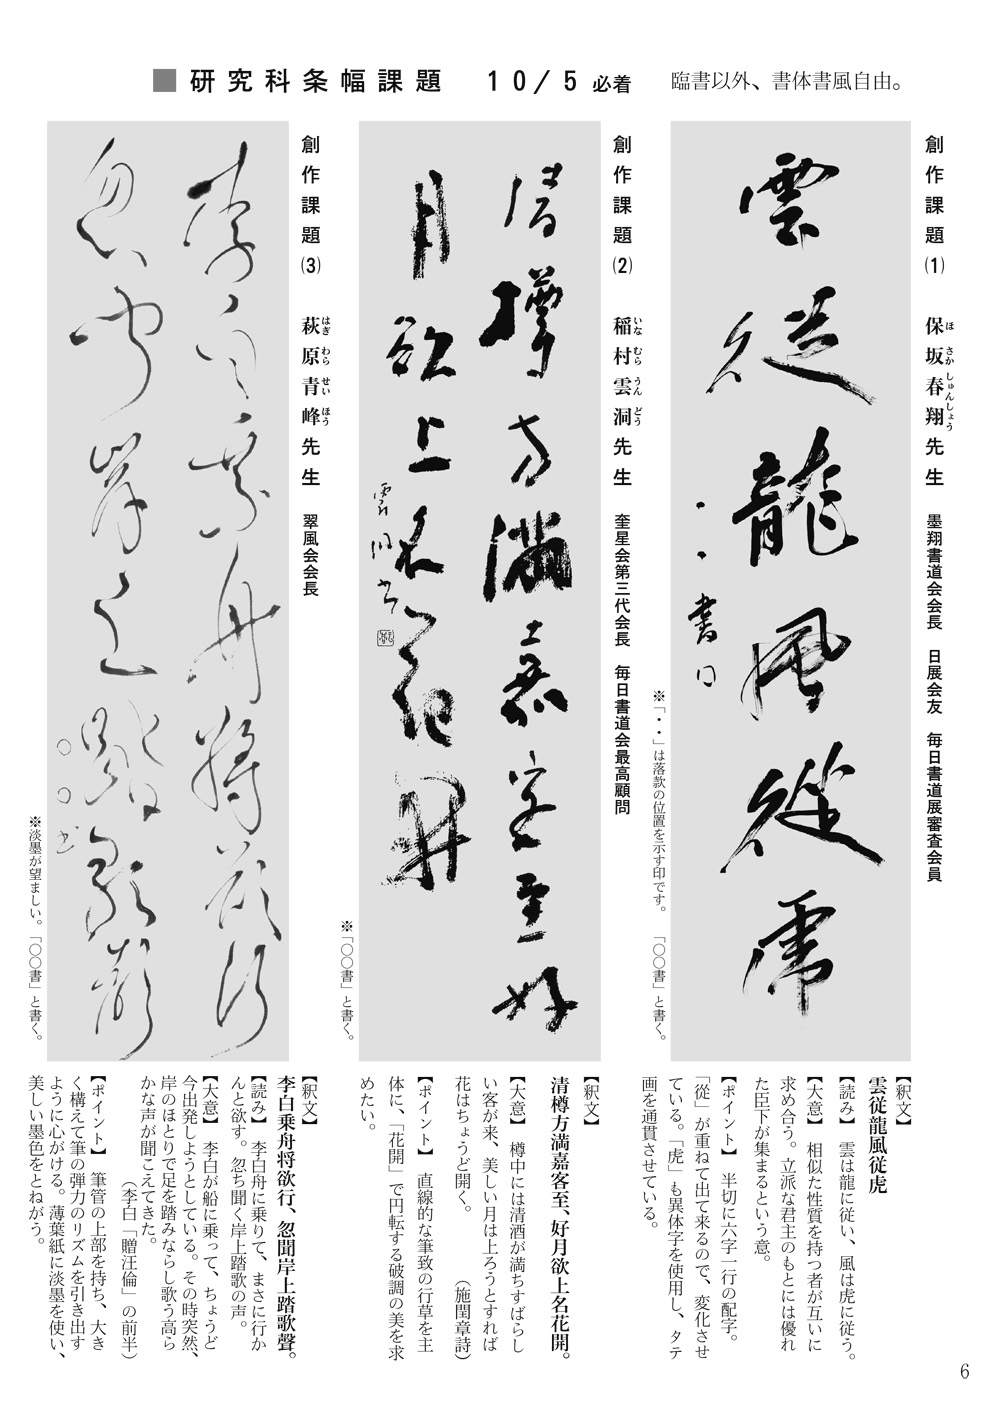 ■研究科条幅課題 10/5必着 臨書以外、書体書風自由。
創作課題(1) 保坂春翔先生 墨翔書道会会長 日展会友 毎日書道展審査会員
ほ さか しゅんしょう
雲従龍風従虎
・・書囗
※「・・」は落款の位置を示す印です。 「〇〇書」と書く。
【釈文】
雲従龍風従虎
【読み】 雲は龍に従い、風は虎に従う。
【大意】 相似た性質を持つ者が互いに
求め合う。立派な君主のもとには優れ
た臣下が集まるという意。
【ポイント】 半切に六字一行の配字。
「従」が重ねて出て来るので、変化させ
ている。「虎」も異体字を使用し、タテ
画を通貫させている。
創作課題(2) 稲村雲洞先生 奎星会第三代会長 毎日書道会最高顧問
いな むら うん どう
清樽方満嘉客至好
月欲上名花開
雲洞書
※「〇〇書」と書く。
【釈文】
清樽方満嘉客至、好月欲上名花開。
【大意】 樽中には清酒が満ちすばらし
い客が来、美しい月は上ろうとすれば
花はちょうど開く。 (施閏章詩)
【ポイント】 直線的な筆致の行草を主
体に、「花開」で円転する破調の美を求
めたい。
創作課題(3) 萩原青峰先生 翠風会会長
はぎ わら せい ほう
李白乗舟将欲行
忽聞岸上踏歌聲
〇〇書
※淡墨が望ましい。「〇〇書」と書く。
【釈文】
李白乗舟将欲行、忽聞岸上踏歌聲。
【読み】 李白舟に乗りて、まさに行か
んと欲す。忽ち聞く岸上踏歌の声。
【大意】 李白が船に乗って、ちょうど
今出発しようとしている。その時突然、
岸のほとりで足を踏みならし歌う高ら
かな声が聞こえてきた。
(李白「贈汪倫」の前半)
【ポイント】 筆管の上部を持ち、大き
く構えて筆の弾力のリズムを引き出す
ように心がける。薄葉紙に淡墨を使い、
美しい墨色をとねがう。
6